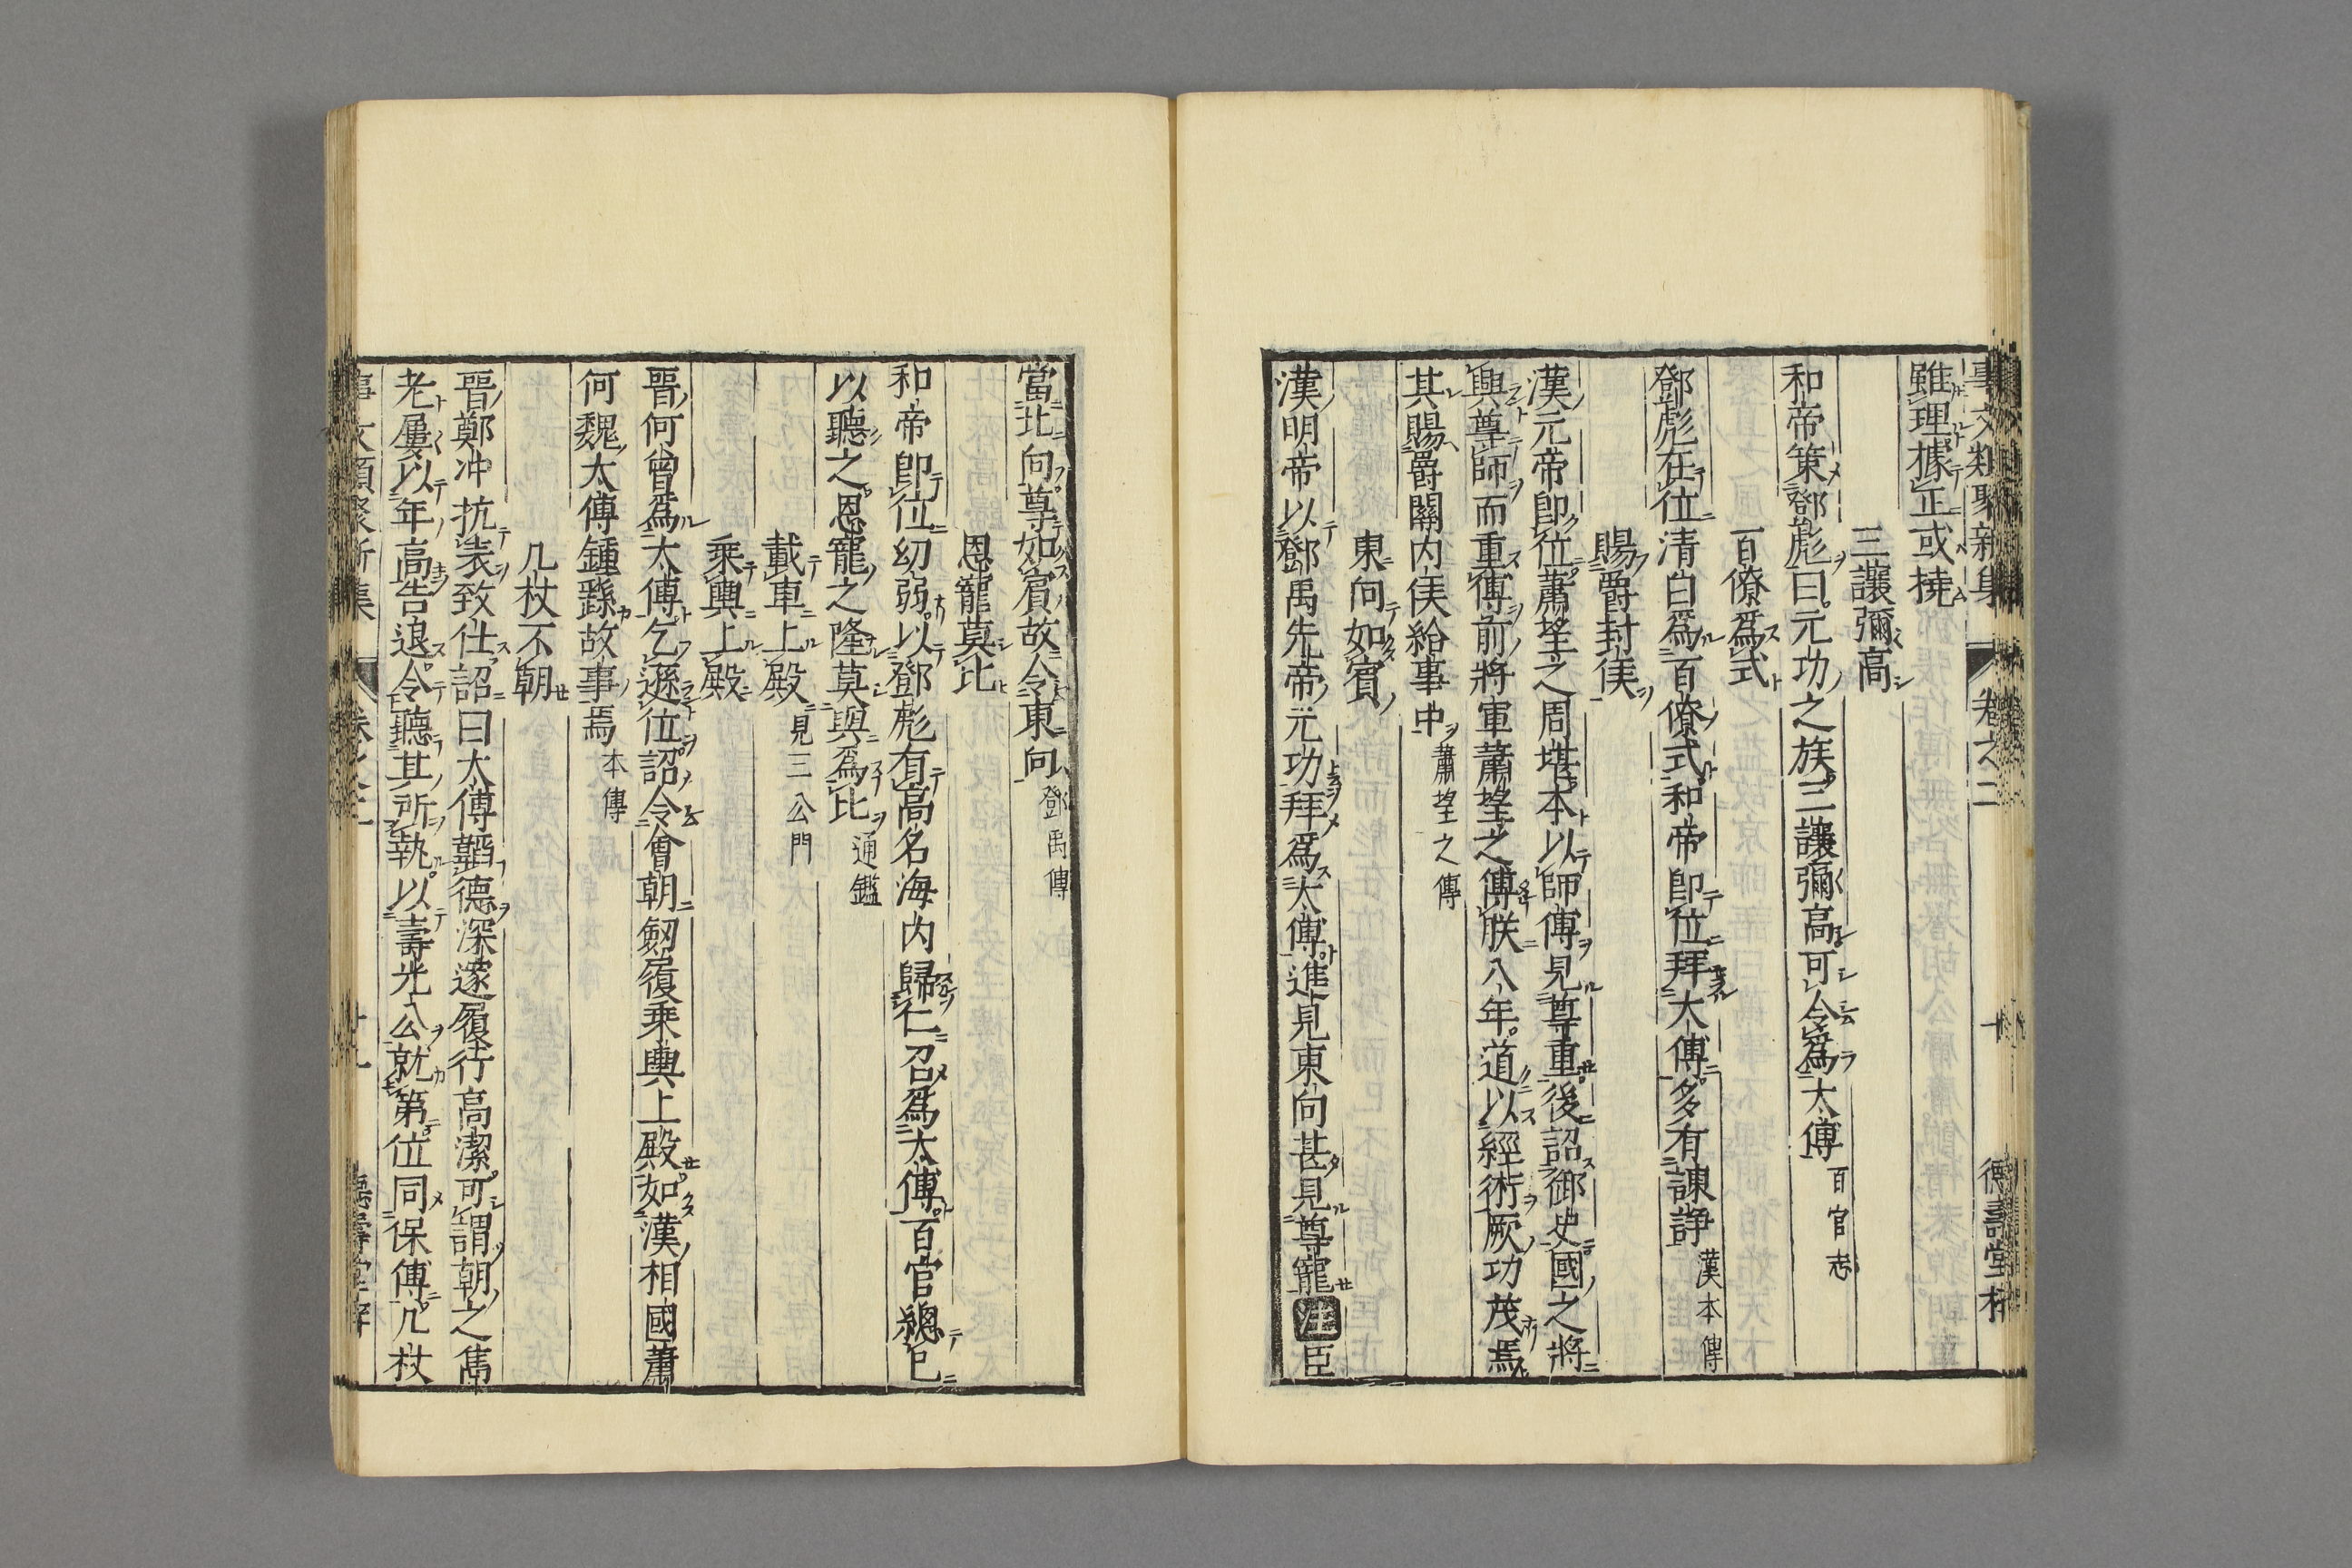 事文類聚新集 卷之二 德壽堂梓
雖理據正或撓
三讓彌高
和帝策鄧彪曰元功之族三讓彌高可令爲太傅 百官志
百僚爲式
鄧彪在位清白爲百僚式和帝卽位拜大傅多有諫諍 漢本傳
賜爵封侯
漢元帝卽位蕭望之周堪本以師傅見尊重後詔御史國之將
興尊師而重傅前將軍蕭望之傅朕八年道以經術厥功茂焉
其賜爵關內侯給事中 蕭望之傳
東向如賓
漢明帝以鄧禹先帝元功拜爲太傅進見東向甚見尊寵 注 臣
當北向尊如賓故令東向 鄧禹傳
恩寵莫比
和帝卽位幼弱以鄧彪有高名海內歸仁召爲太傅百官總已
以聽之恩寵之隆莫與爲比 通鑑
載車上殿 見三公門
乘輿上殿
晉何曾爲太傅乞遜位詔令會朝劒履乘輿上殿如漢相國蕭
何魏太傅鍾繇故事焉 本傳
几杖不朝
晉鄭冲抗表致仕詔曰太傅韜德深邃履行高潔可謂朝之雋
老屢以年高告退令聽其所執以壽光公就第位同保傅几杖